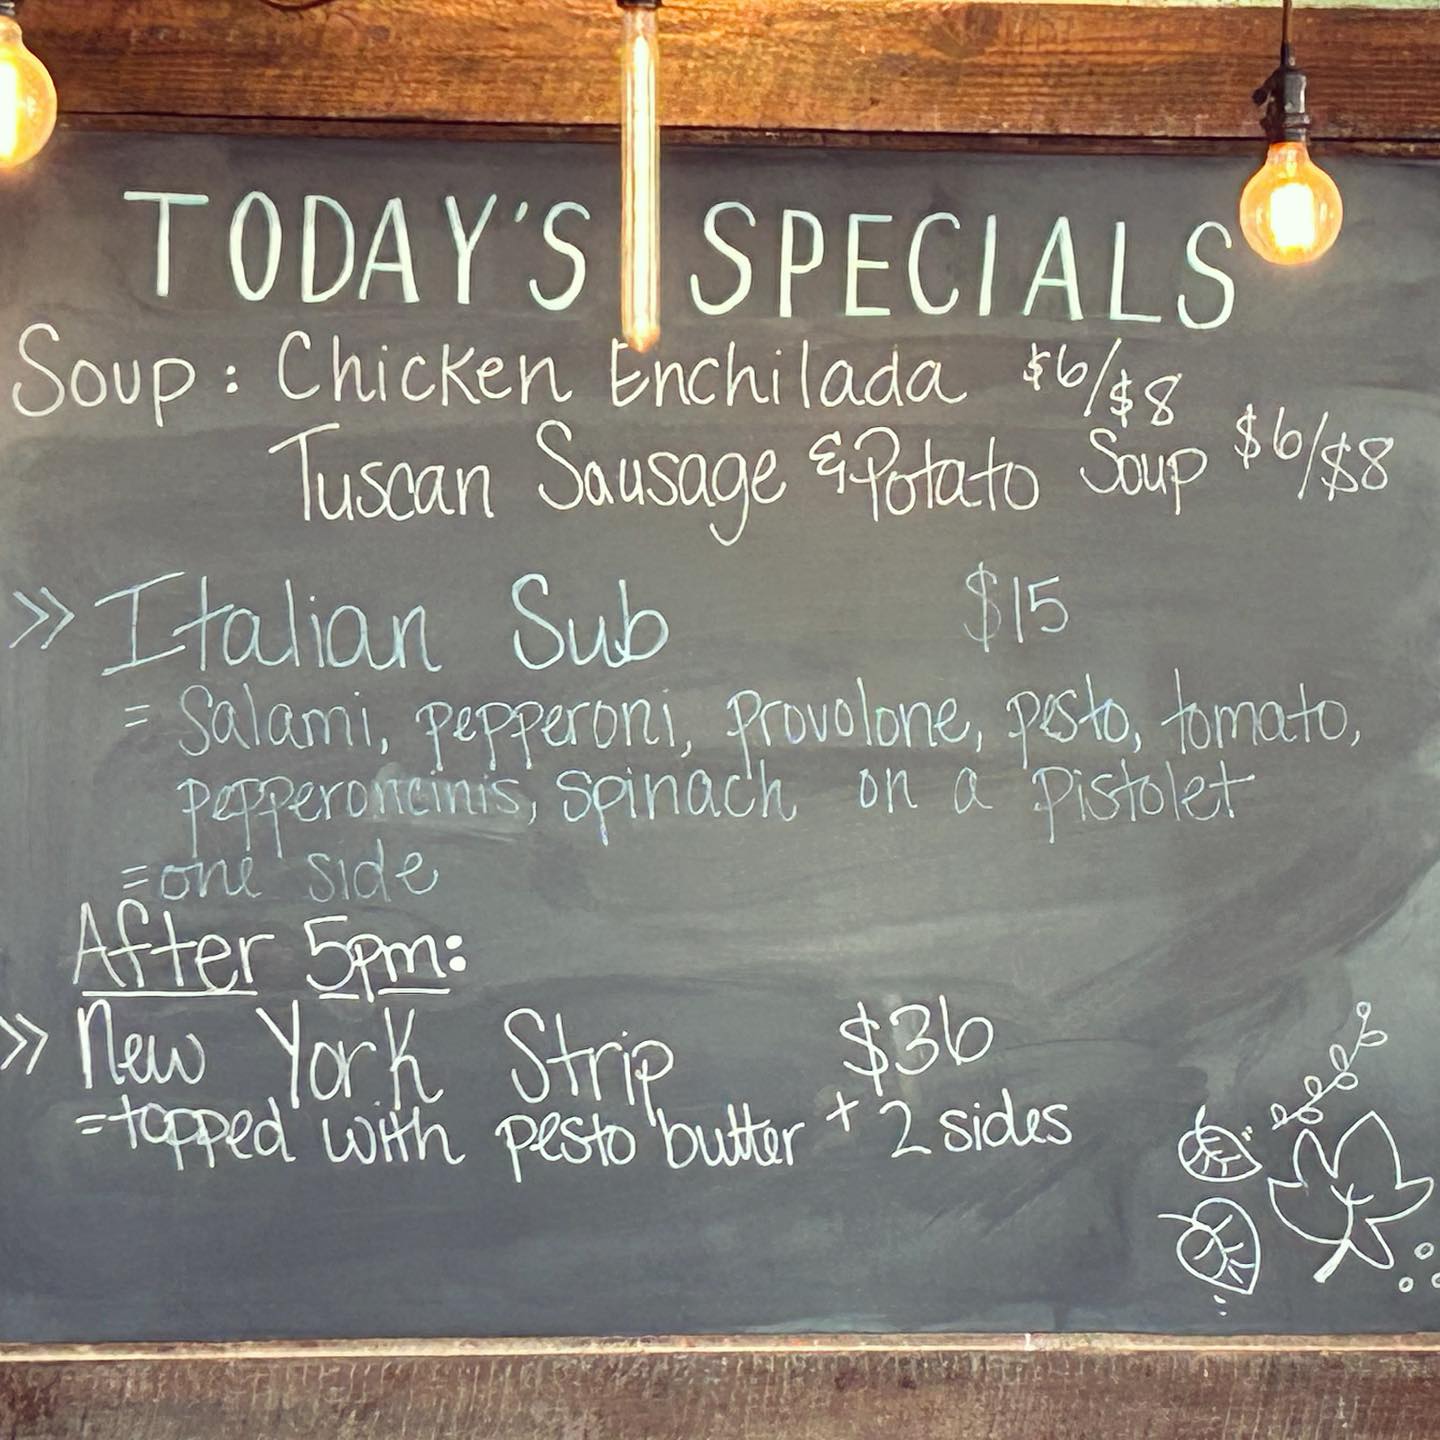 TODAY'S SPECIALS
Soup: Chicken Enchilada $6/$8
Tuscan Sausage & Potato Soup $6/$8
>> Italian Sub $15
= Salami, pepperoni, provolone, pesto, tomato,
pepperoncinis, spinach on a pistolet
= one side
After 5pm:
>> New York Strip $36
= topped with pesto butter + 2 sides